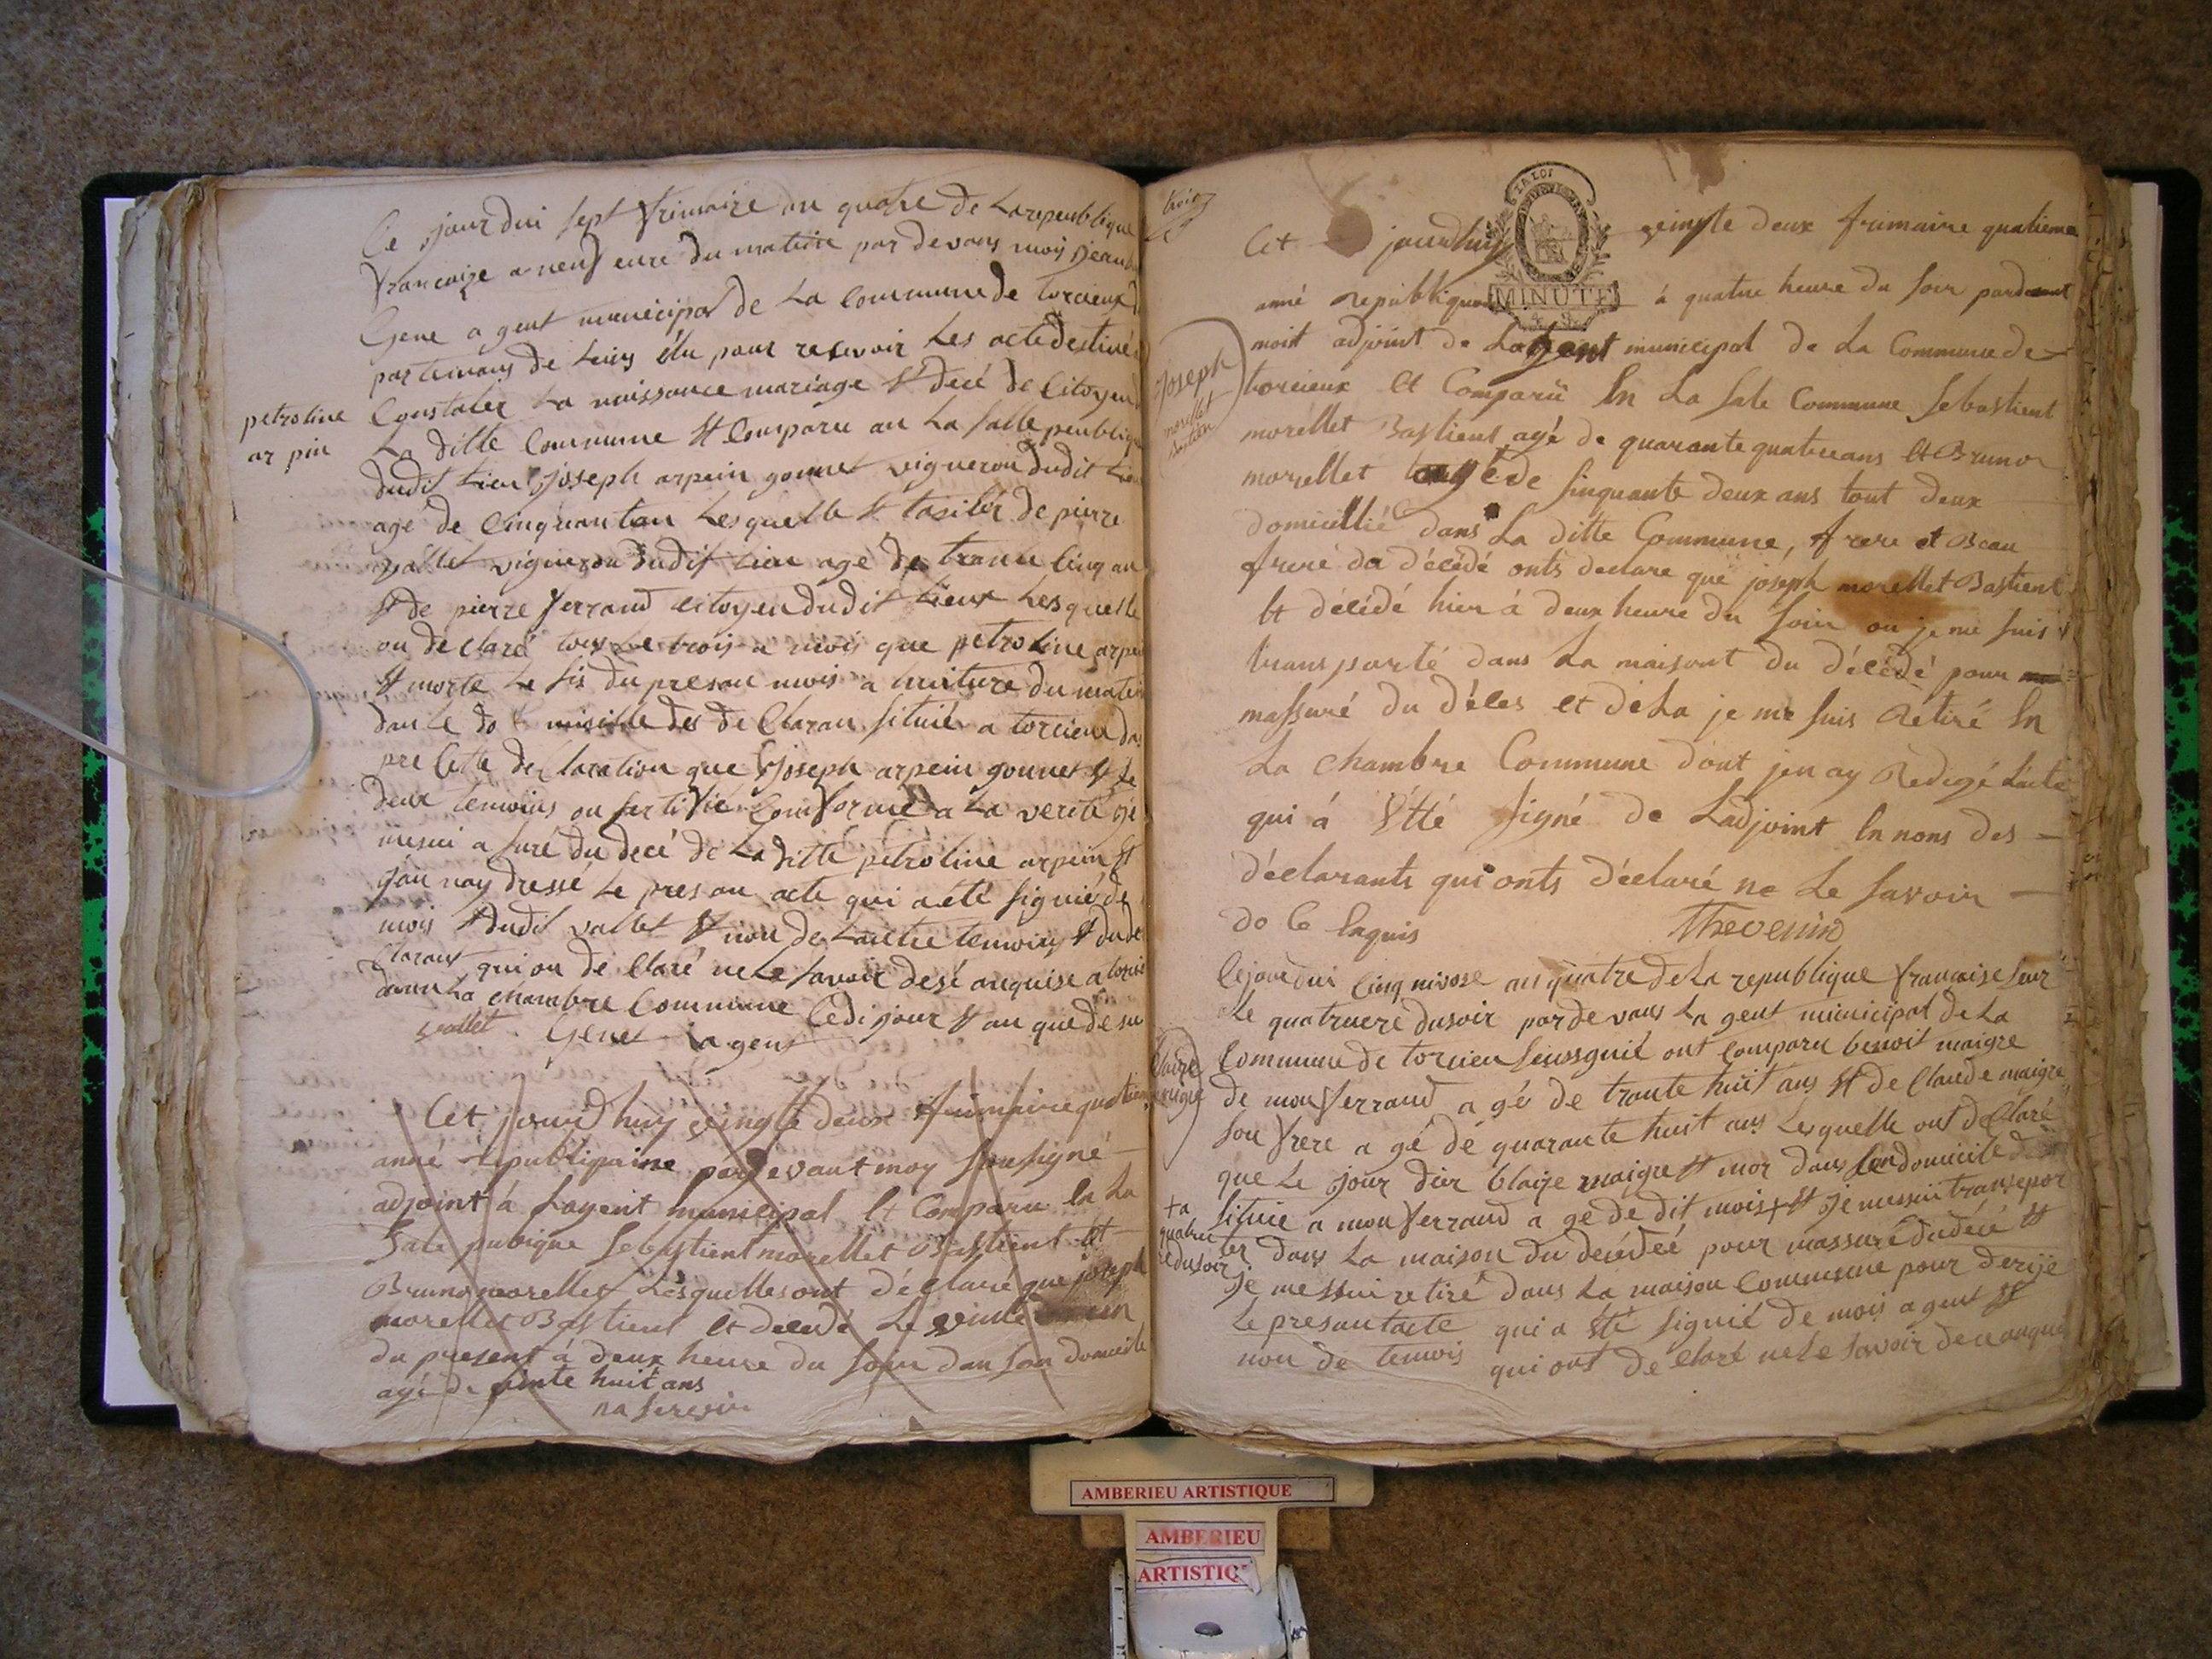 Ce jour dui sept frimaire an quatre de La republique
francaize a neuf eure du matin par devans moÿ jean
Gene a gent municipal de La Commune de torcieux
Constater La naissance mariage et decé de Citoyen
petroline
ar pin
La ditte Commune et Comparu an La salle peublique
dudit Lieu joseph arpein gonnet vigneron dudit Lieu
agé de Cinquantan Lesquelle et de pierre
vallet vigneron dudit Lieu age de trante Cinq an
et de pierre ferrand citoyen dudit Lieux Lesquelle
on de Claré tous Le trois a mois que petroline arpei
et morte Le sis du presan mois a huiture du matin
dan Le do misille des de Claran situié a torcieux da
pre Cette de Claration que joseph arpein gonnet et Le
deux temoins on sertifié Conforme a La verité je
mesui a suré du decé de La ditte petroline arpein et
jau nay dressé Le presan acte qui a été signié de
mois et dudit vallet et non de Lautre temoins et du de
Clarans qui on de Claré ne Le savoir desé anquise a torcie
dans La chambre Commune Cedi jour et an que de su
vallet Genet a gent
Cet jourdhuy veingte deux frimaire quatiem
anné republiquaine pardevant moy sousigné
adjoint à Lagent municipal et Comparu En La
Sale pubique Sebastient morellet Bastient et
Bruno morellet Lesquelles ont déclaré que joseph
morellet Bastient et décédé Le vinte un
du present à deux heure du soir dan son domicile
agé de vinte huit ans
trois
Cet jourdhuy veingte deux frimaire quatieme
LA LOI
MINUTE
anné Republiquaine à quatre heure du soir pardevant
moit adjoint de Lagent municipal de La Commune de
Joseph
morellet
Bastien
torcieux Et Comparü En La Sale Commune Sebastient
morellet Bastient agé de quarante quatre ans Et Bruno
morellet agé de sinquante deux ans tout deux
domicillié dans La ditte Commune, frere et Beau
frere du décédé onts declare que jóseph morellet Bastient
Et décédé hier à deux heure du soir ou je me suis
transporté dans La maisont du décédé pour
massuré du déces et déLa je me suis Retiré En
La Chambre Commune dont jen ay Redigé Lacte
qui á Etté signé de Ladjoint En nons des
déclarants qui onts déclaré ne Le savoir
do Ce Enquis Thevenin
Cejourdui Cinq nivose an quatre de La republique francaise sur
Le quatruere dusoir pardevans La gent municipal de La
Commune de torcieu soussignié ont Comparu benoit maigre
Claire
maigre
de mon ferrand a gé de trante huit ans et de Claude maigre
son frere a gé de quarante huit ans Lesquelle ont deClaré
que Le jour dier blaize maigre et mor dans son domicile
situié a mon ferrand a ge de dit mois + et je messui transpor
+ a
quatrue
re dusoir
ter dans La maison du décédeé pour massuré dudecé et
Je messui retiré dans La maison Commune pour derijé
Le presantacte qui a été signié de mois agent et
non de temois qui ont de Claré ne Le savoir de ce anquis
AMBERIEU ARTISTIQUE
AMBERIEU
ARTISTIQ